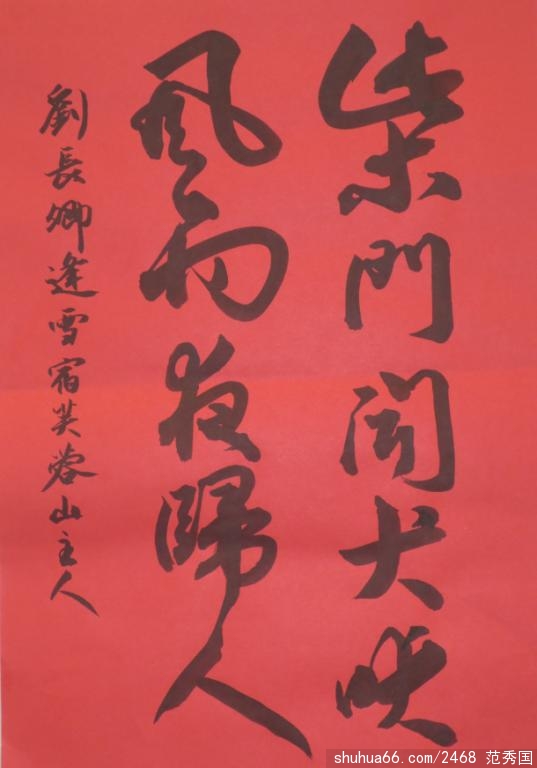 柴門聞犬吠
風雪夜歸人
劉長卿逢雪宿芙蓉山主人
shuhua66.com/2468 范秀国